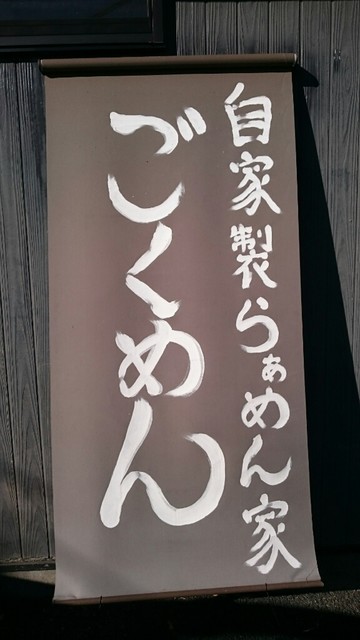 自家製らぁめん家
ごくめん